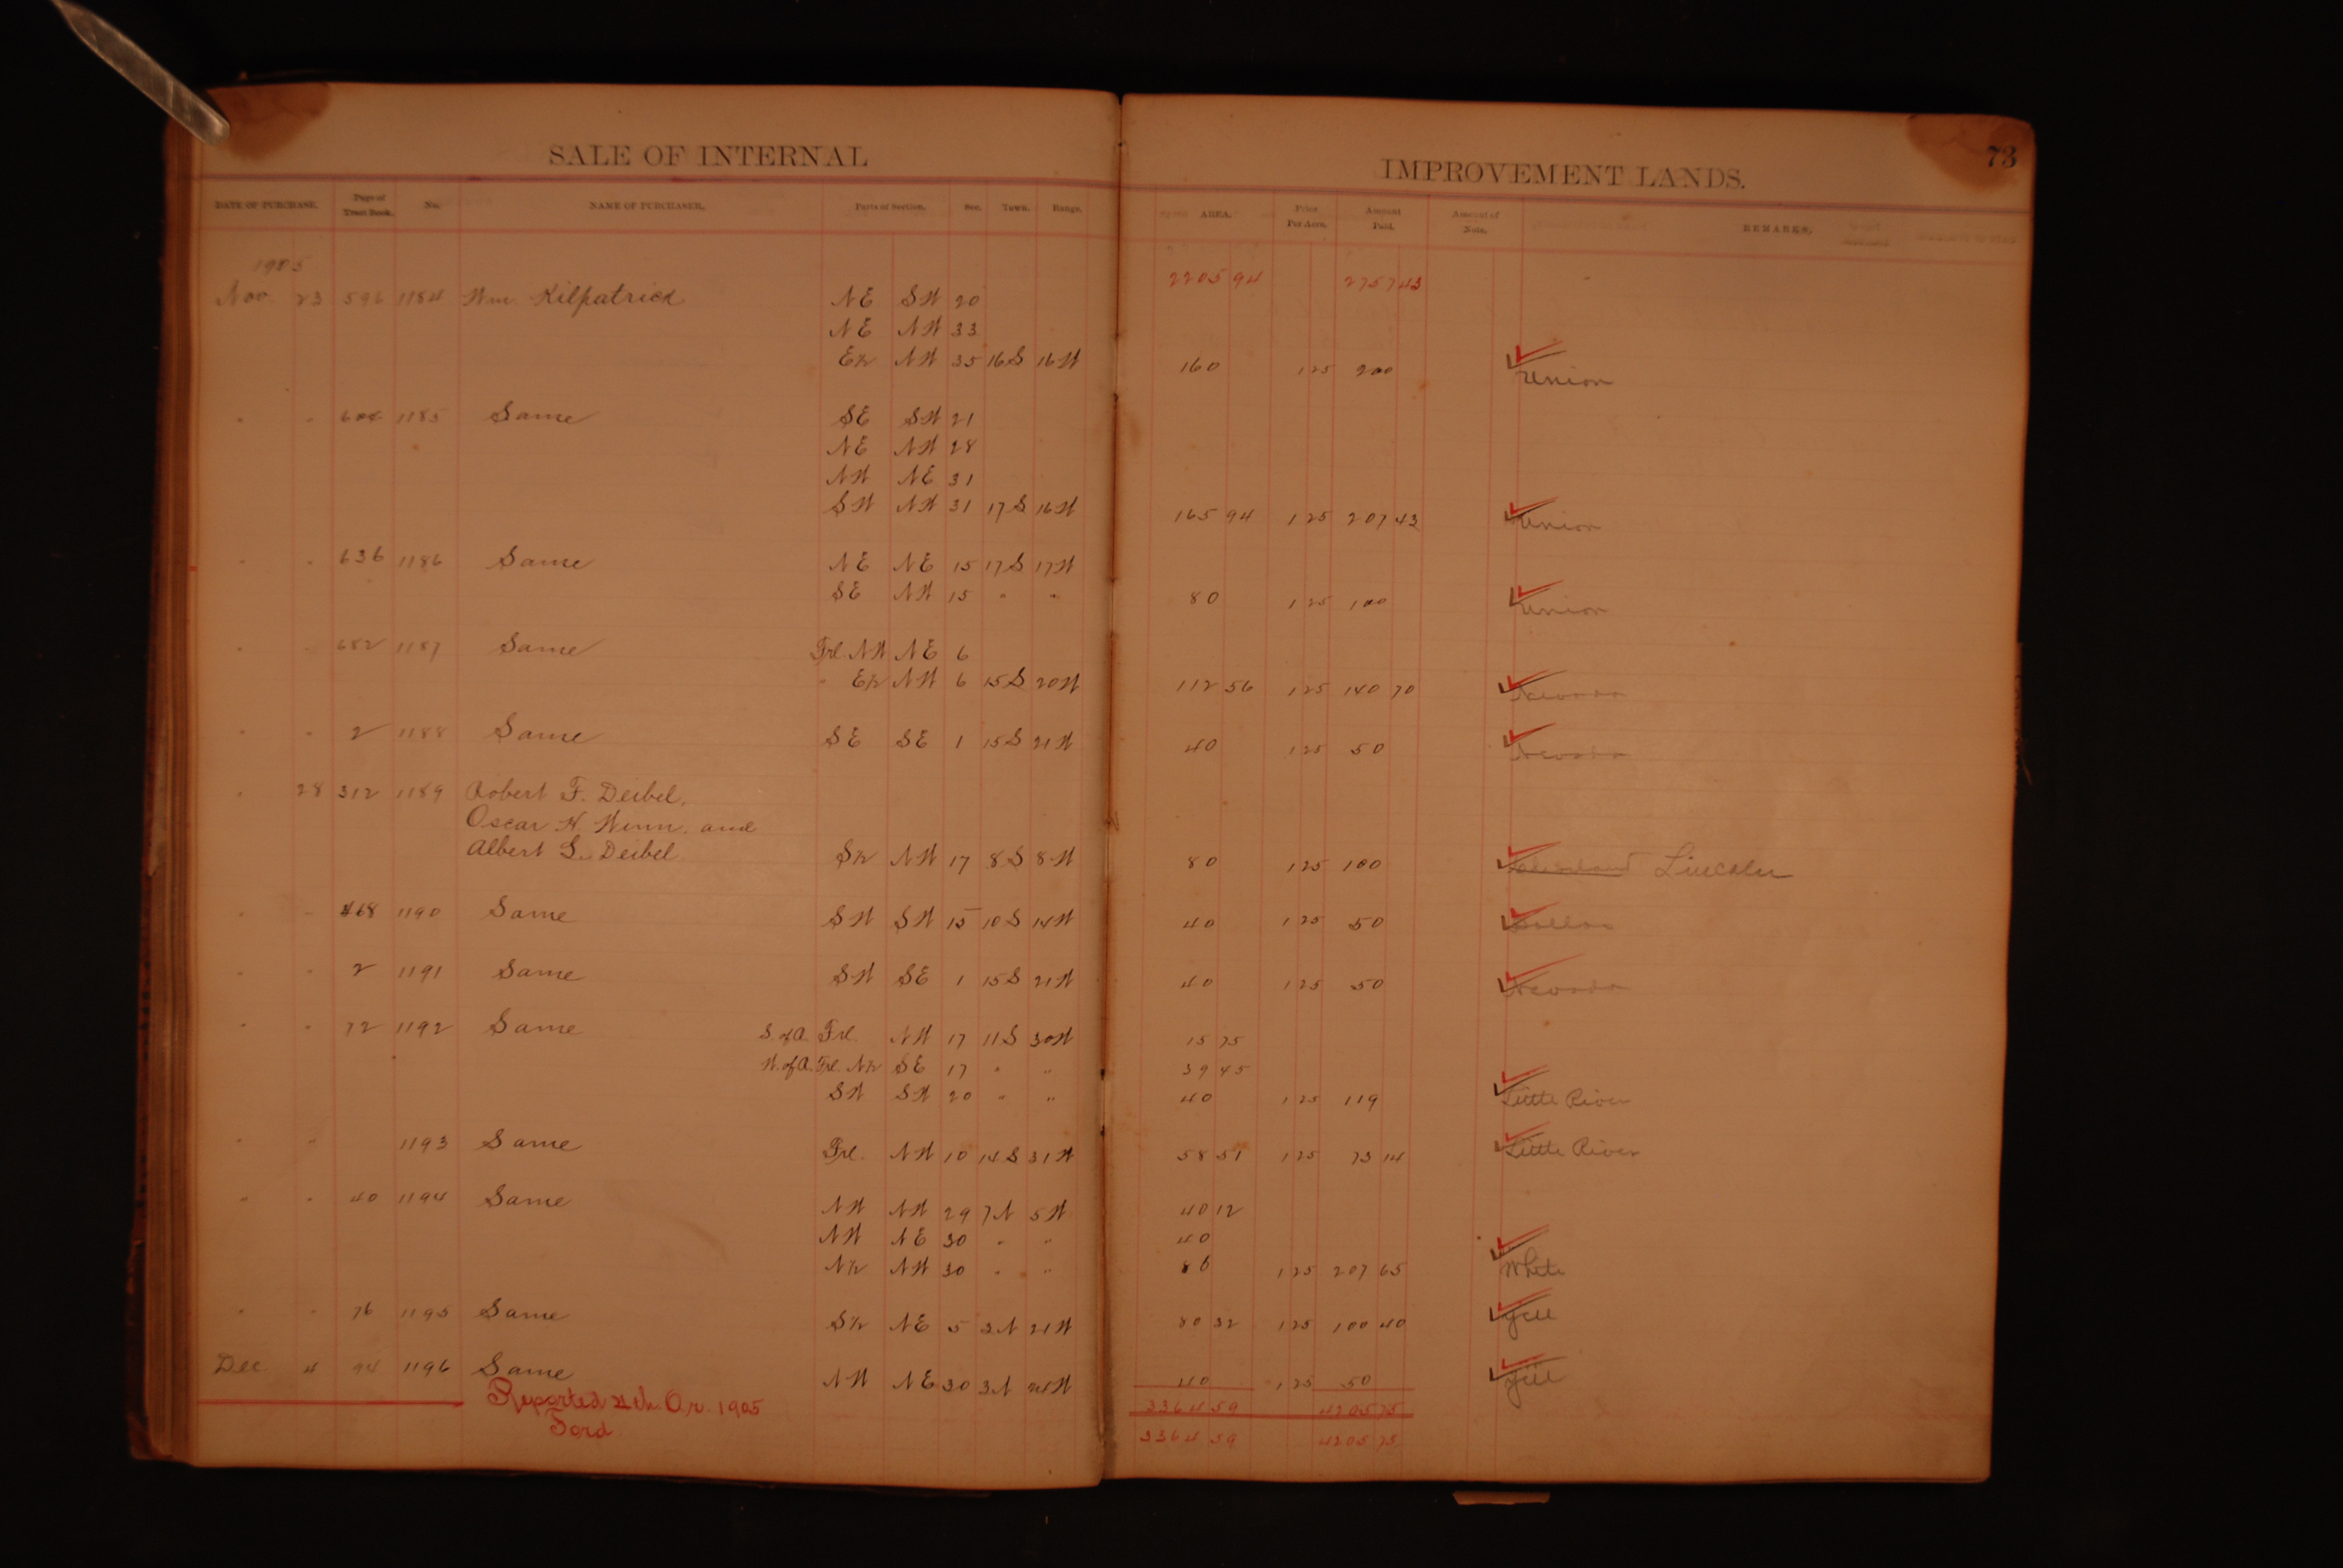 SALE OF INTERNAL IMPROVEMENT LANDS. 73
DATE OF PURCHASE. Page of Tract Book. No. NAME OF PURCHASER. Parts of Section. Sec. Town. Range. AREA. Price Per Acre. Amount Paid. Amount of Note. REMARKS.
1905 2205 94 2757 43
Nov 23 596 1184 Wm. Kilpatrick NE SW 20
NE NW 33
E½ NW 35 16S 16W 160 1 25 200 Union
" " 604 1185 Same SE SW 21
NE NW 28
NW NE 31
SW NW 31 17S 16W 165 94 1 25 207 43 Union
" " 636 1186 Same NE NE 15 17S 17W
SE NW 15 " " 80 1 25 100 Union
" " 682 1187 Same Frl NW NE 6
" E½ NW 6 15S 20W 112 56 1 25 140 70 Nevada
" " 2 1188 Same SE SE 1 15S 21W 40 1 25 50 Nevada
" 28 312 1189 Robert F. Deibel,
Oscar H. Winn, and
Albert S. Deibel S½ NW 17 8S 8W 80 1 25 100 Lincoln
" " 468 1190 Same SW SW 15 10S 14W 40 1 25 50 Dallas
" " 2 1191 Same SW SE 1 15S 21W 40 1 25 50 Nevada
" " 72 1192 Same S. of A. Frl. NW 17 11S 30W 15 75
W. of A. Frl. N½ SE 17 " " 39 45
SW SW 20 " " 40 1 25 119 Little River
" " 1193 Same Frl. NW 10 14S 31W 58 51 1 25 73 14 Little River
" " 40 1194 Same NW NW 29 7N 5W 40 12
NW NE 30 " " 40
N½ NW 30 " " 86 1 25 207 65 White
" " 76 1195 Same S½ NE 5 3N 21W 80 32 1 25 100 40 Yell
Dec 4 94 1196 Same NW NE 30 3N 24W 40 1 25 50 Yell
Reported 4th Qr. 1905 3364 59 4205 75
Ford 3364 59 4205 75